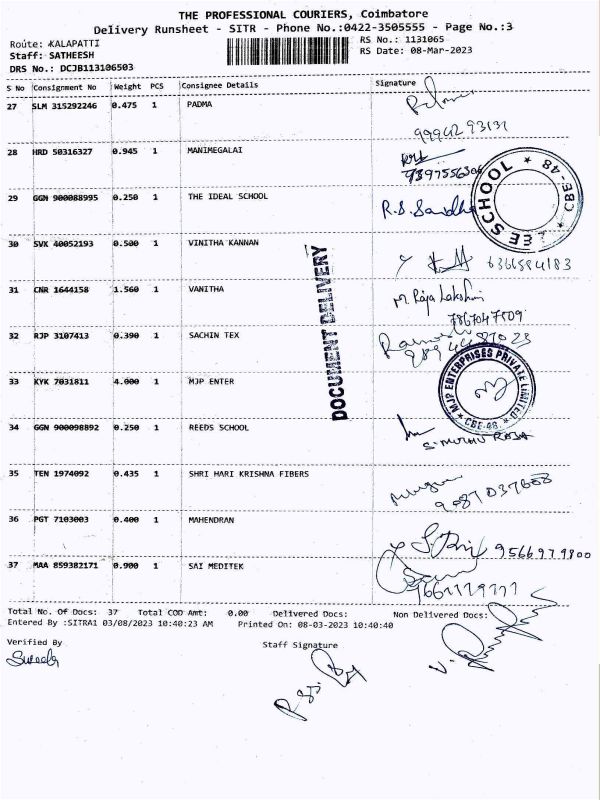 THE PROFESSIONAL COURIERS, Coimbatore
Delivery Runsheet - SITR - Phone No.:0422-3505555 - Page No.:3
Route: KALAPATTI
RS No.: 1131065
Staff: SATHEESH
RS Date: 08-Mar-2023
DRS No.: DCJB113106503
S No Consignment No Weight PCS Consignee Details Signature
27 SLM 315292246 0.475 1 PADMA
28 HRD 50316327 0.945 1 MANIMEGALAI
29 GGN 900088995 0.250 1 THE IDEAL SCHOOL
R.S. Sandhya
SCHOOL ★ CBE-48 ★
30 SVK 40052193 0.500 1 VINITHA KANNAN
DOCUMENT DELIVERY
31 CNR 1644158 1.560 1 VANITHA
M. Raja Lakshmi
7867047509
32 RJP 3107413 0.390 1 SACHIN TEX
33 KYK 7031811 4.000 1 MJP ENTER
MJP ENTERPRISES PRIVATE LIMITED
★ CBE-48. ★
34 GGN 900098892 0.250 1 REEDS SCHOOL
S. MUTHU RAJA
35 TEN 1974092 0.435 1 SHRI HARI KRISHNA FIBERS
9087037608
36 PGT 7103003 0.400 1 MAHENDRAN
9566979800
37 MAA 859382171 0.900 1 SAI MEDITEK
Total No. Of Docs: 37 Total COD Amt: 0.00 Delivered Docs: Non Delivered Docs:
Entered By :SITRA1 03/08/2023 10:40:23 AM Printed On: 08-03-2023 10:40:40
Verified By
Staff Signature